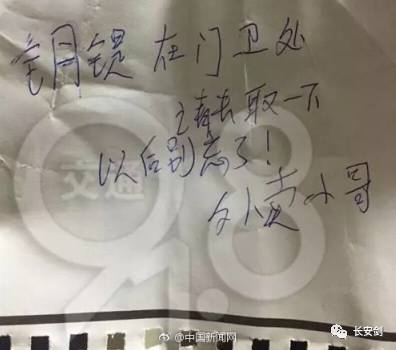 钥匙在门卫处
去取一下
以后别忘了！
外卖小哥
交通
91.8
@中国新闻网
长安剑